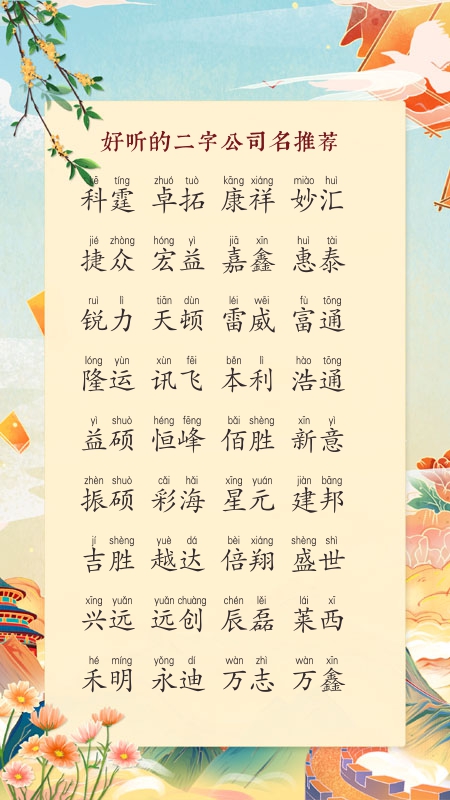 好听的二字公司名推荐
kē tíng zhuó tuò kāng xiáng miào huì
科霆 卓拓 康祥 妙汇
jié zhòng hóng yì jiā xīn huì tài
捷众 宏益 嘉鑫 惠泰
ruì lì tiān dùn léi wēi fù tōng
锐力 天顿 雷威 富通
lóng yùn xùn fēi běn lì hào tōng
隆运 讯飞 本利 浩通
yì shuò héng fēng bǎi shèng xīn yì
益硕 恒峰 佰胜 新意
zhèn shuò cǎi hǎi xīng yuán jiàn bāng
振硕 彩海 星元 建邦
jí shèng yuè dá bèi xiáng shèng shì
吉胜 越达 倍翔 盛世
xīng yuǎn yuǎn chuàng chén lěi lái xī
兴远 远创 辰磊 莱西
hé míng yǒng dí wàn zhì wàn xīn
禾明 永迪 万志 万鑫